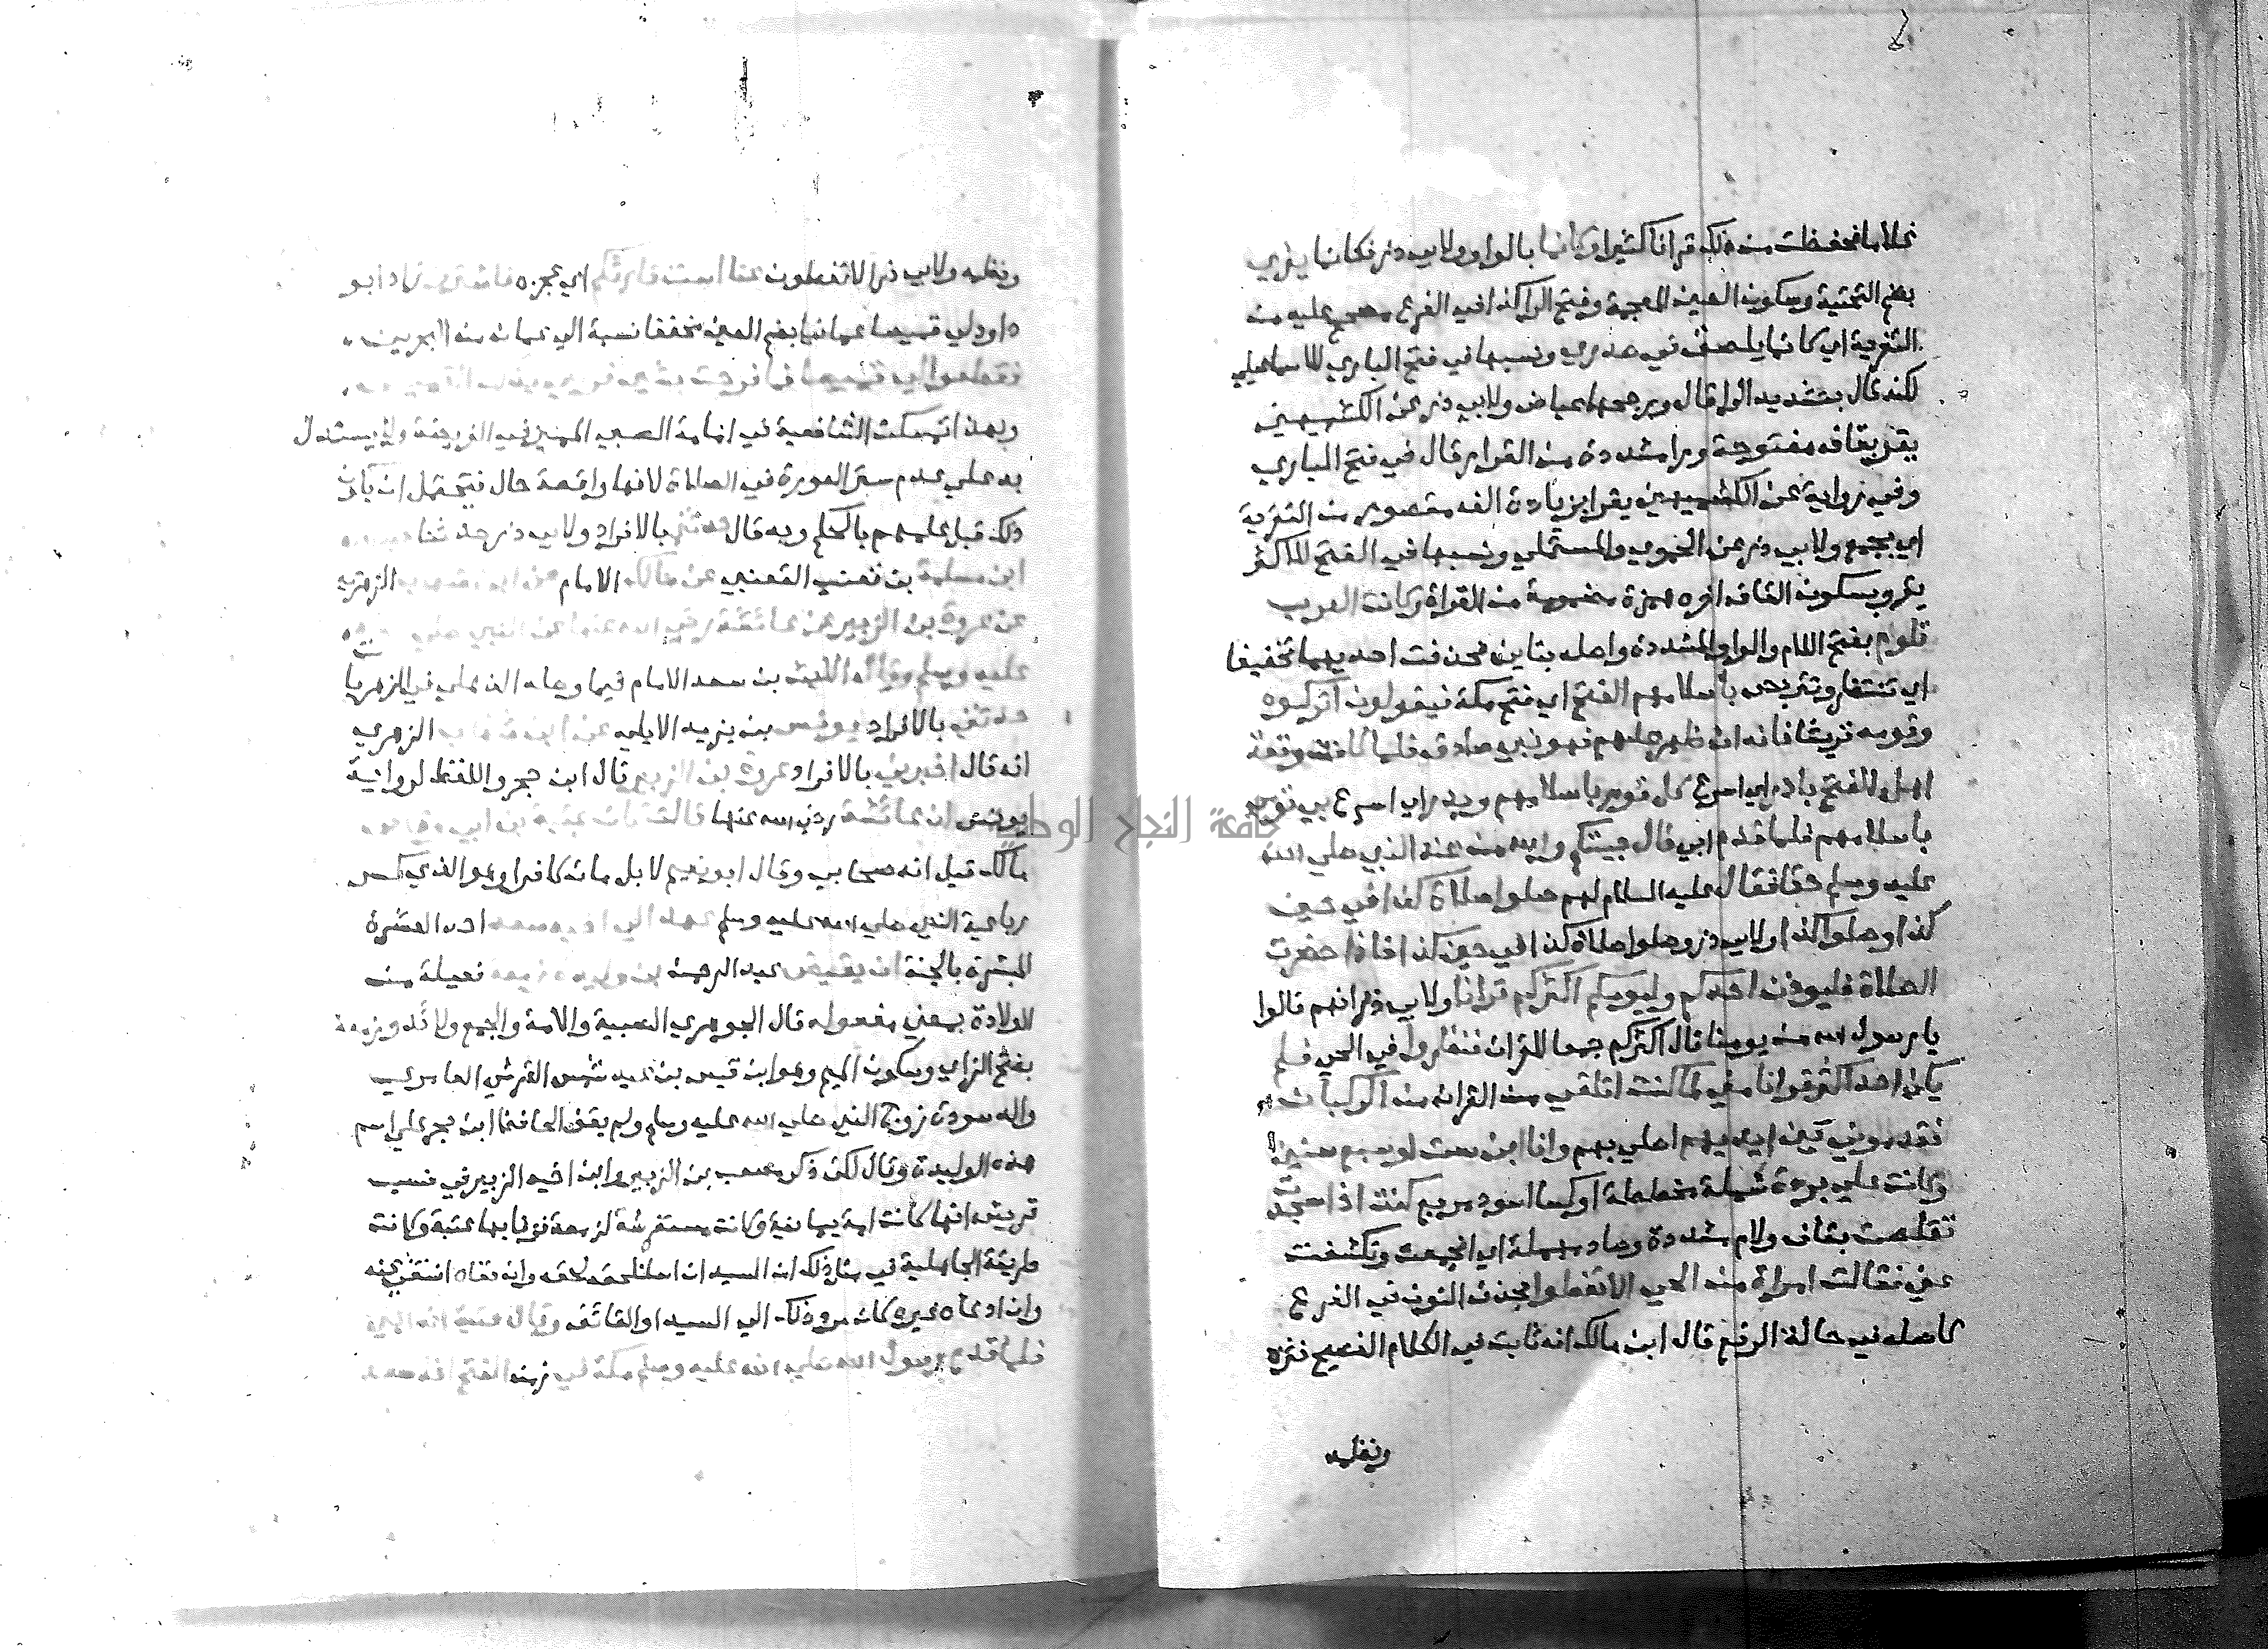 غلاما فحفظت من ذلك قرانا كثيرا وكانما بالواو ولابي ذر فكانما يغري
بضم التحتية وسكون الغين المعجمة وفتح الرا كذا في الفرع مصحح عليه من
التغرية اي كانما يلصق في صدري ونسبها في فتح الباري للاسماعيلي
لكنه قال بتشديد الرا قال ورجحها عياض ولابي ذر عن الكشميهني
يقر بقاف مفتوحة ورا مشددة من القرار قال في فتح الباري
وفي رواية عن الكشميهني يقرا بزيادة الف مقصورة من التقرية
اي يجمع ولابي ذر عن الحموي والمستملي ونسبها في الفتح للاكثر
يقرو بسكون القاف اخره همزة مضمومة من القراة وكانت العرب
تلوم بفتح اللام والواو المشددة واصله بتاين فحذفت احديهما تخفيفا
اي تنتظر وتتربص باسلامهم الفتح اي فتح مكة فيقولون اتركوه
وقومه قريشا فانه ان ظهر عليهم فهو نبي صادق فلما كانت وقعة
اهل الفتح بادر اي اسرع كل قوم باسلامهم وبدر اي اسرع ابي قومي
باسلامهم فلما قدم ابي قال جيتكم والله من عند النبي صلي الله
عليه وسلم حقا فقال عليه السلام لهم صلوا صلاة كذا في حين
كذا وصلوا كذا ولابي ذر وصلوا صلاة كذا في حين كذا فاذا حضرت
الصلاة فليوذن احدكم وليومكم اكثركم قرانا ولابي ذر انهم قالوا
يا رسول الله من يومنا قال اكثركم جمعا للقران فنظروا في الحي فلم
يكن احد اكثر قرانا مني لما كنت اتلقي من القران من الركبان
فقدموني بين ايديهم اصلي بهم وانا ابن ست او سبع سنين
وكانت علي بردة شملة مخططة او كسا اسود مربع كنت اذا سجدت
تقلصت بقاف ولام مشددة وصاد مهملة اي انجمعت وتكشفت
عني فقالت امراة من الحي الا تغطوا بحذف النون في الفرع
كاصله في حالة الرفع قال ابن مالك انه ثابت في الكلام الفصيح نثره
ونظمه
ونظمه ولابي ذر الا تغطون عنا است قارئكم اي عجزه فاشتروا زاد ابو
داود لي قميصا عمانيا بضم العين مخففا نسبة الي عمان من البحرين
فقطعوا لي قميصا فما فرحت بشي فرحي بذلك القميص
وبهذا تمسكت الشافعية في امامة الصبي المميز في الفريضة ولا يستدل
به علي عدم ستر العورة في الصلاة لانها واقعة حال فيحتمل ان يكون
ذلك قبل علمهم بالحكم وبه قال حدثني بالافراد ولابي ذر حدثنا
ابن مسلمة بن قعنب القعنبي عن مالك الامام عن ابن شهاب الزهري
عن عروة بن الزبير عن عائشة رضي الله عنها عن النبي صلي الله
عليه وسلم وقال الليث بن سعد الامام فيما وصله الذهلي في الزهريات
حدثني بالافراد يونس بن يزيد الايلي عن ابن شهاب الزهري
انه قال اخبرني بالافراد عروة بن الزبير قال ابن حجر واللفظ لرواية
يونس ان عائشة رضي الله عنها قالت كان عتبة بن ابي وقاص
مالك قيل انه صحابي وقال ابو نعيم لا بل مات كافرا وهو الذي كسر
رباعية النبي صلي الله عليه وسلم عهد الي اخيه سعد احد العشرة
المبشرة بالجنة ان يقبض عبد الرحمن ابن وليدة زمعة فعيلة من
الولادة بمعني مفعولة قال الجوهري الصبية والامة والجمع ولائد وزمعة
بفتح الزاي وسكون الميم وهو ابن قيس بن عبد شمس القرشي العامري
والد سودة زوج النبي صلي الله عليه وسلم ولم يقف الحافظ ابن حجر علي اسم
هذه الوليدة وقال لكن ذكر مصعب بن الزبير وابن اخيه الزبير في نسب
قريش انها كانت امة يمانية وكانت مستفرشة لزمعة فزنا بها عتبة وكانت
طريقة الجاهلية في مثل ذلك ان السيد ان استلحقه لحقه وان نفاه انتفي عنه
وان ادعاه غيره كان مرد ذلك الي السيد او القائف وقال عتبة انه ابني
فلما قدم رسول الله صلي الله عليه وسلم مكة في زمن الفتح اخذ سعد
جامعة النجاح الوطنية